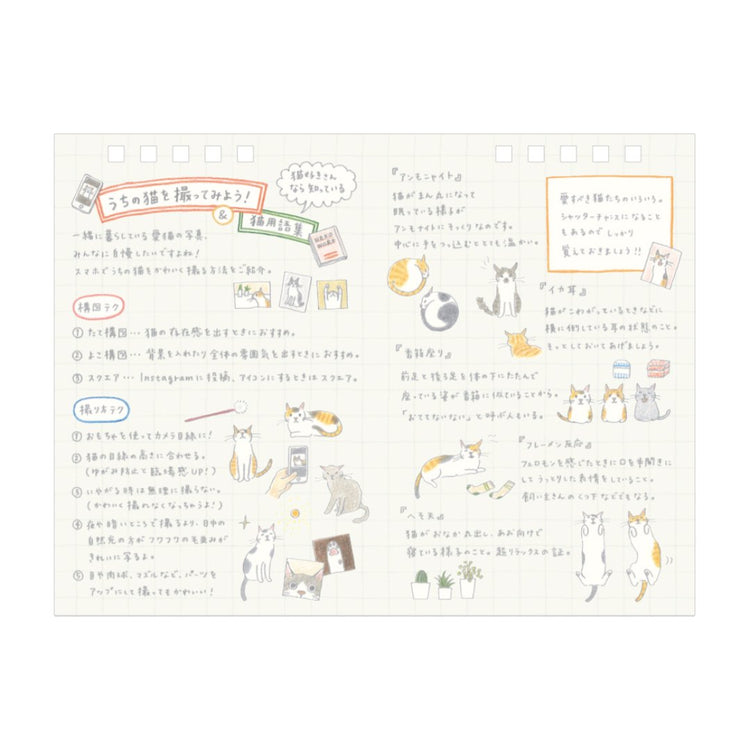 うちの猫を撮ってみよう!
&
猫用語集
猫好きさん
なら知っている
NEKO
WORD
一緒に暮らしている愛猫の写真、
みんなに自慢したいですよね!
スマホでうちの猫をかわいく撮る方法をご紹介。
構図テク
① たて構図… 猫の存在感を出すときにおすすめ。
② よこ構図… 背景を入れたり全体の雰囲気を出すときにおすすめ。
③ スクエア… Instagramに投稿、アイコンにするときはスクエア。
撮り方テク
① おもちゃを使ってカメラ目線に!
② 猫の目線の高さに合わせる。
(ゆがみ防止で臨場感UP!)
③ いやがる時は無理に撮らない。
(かわいく撮れなくなっちゃうよ!)
④ 夜や暗いところで撮るより、日中の
自然光の方がフワフワの毛並みが
きれいに写るよ。
⑤ 目や肉球、マズルなど、パーツを
アップにして撮ってもかわいい!
『アンモニャイト』
猫がまん丸になって
眠っている様子が
アンモナイトにそっくりなのです。
中心に手をつっ込むととても温かい。
愛すべき猫たちのいろいろ。
シャッターチャンスになること
もあるので しっかり
覚えておきましょう!!
『イカ耳』
猫がこわがっているときなどに
横に倒している耳の状態のこと。
そっとしておいてあげましょう。
『香箱座り』
前足と後ろ足を体の下にたたんで
座っている姿が香箱に似ていることから。
「おててないない」と呼ぶ人もいる。
『フレーメン反応』
フェロモンを感じたときに口を半開きに
してうっとりした表情をしていること。
飼い主さんのくつ下などでもなる。
『へそ天』
猫がおなか丸出し、あお向けで
寝ている様子のこと。超リラックスの証。